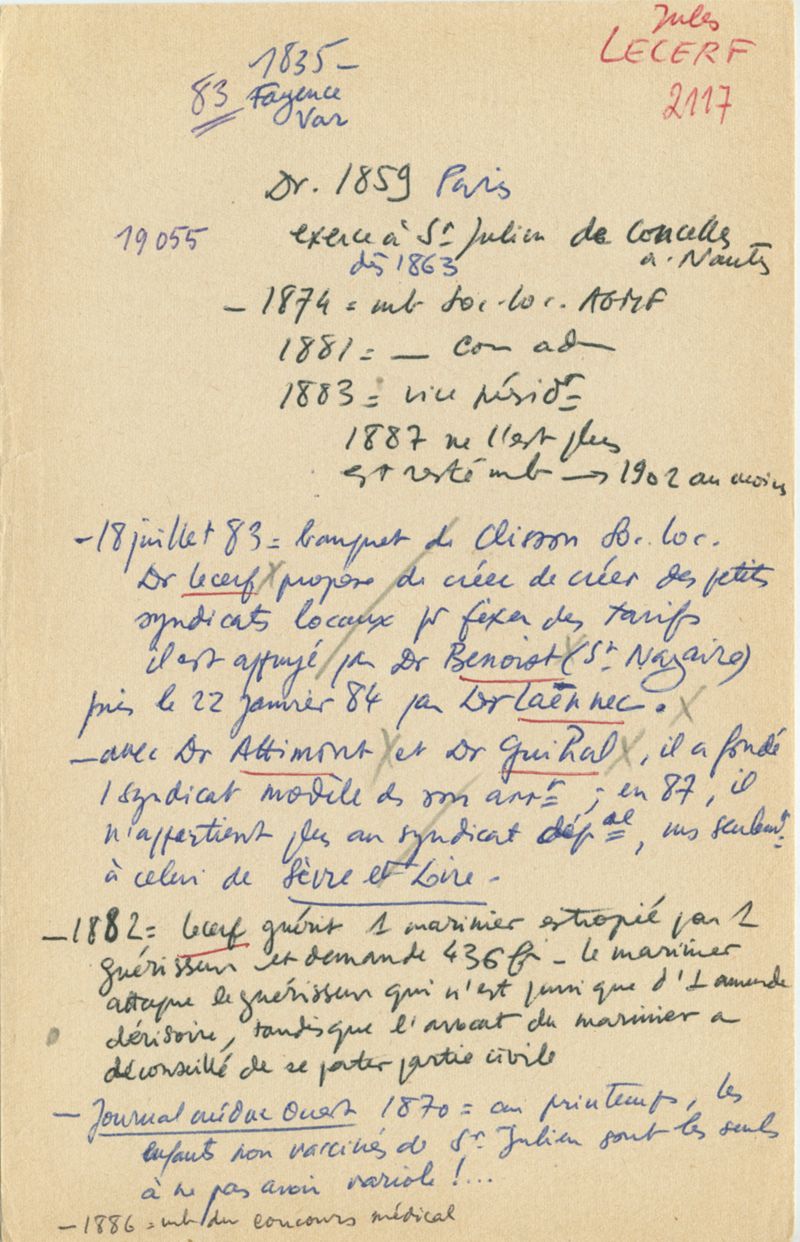 Jules
LECERF
2117
1835 –
83 Fayence
Var
Dr. 1859 Paris
19055 exerce à St Julien de Concelles
dès 1863 a. Nantes
– 1874 = mb Soc. loc. AGMF
1881 = — com adm
1883 = vice présidt
1887 ne l'est plus
est resté mb → 1902 au moins
– 18 juillet 83 = banquet de Clisson Soc. loc.
Dr Lecerf propose de créer de créer des petits
syndicats locaux pr fixer des tarifs
il est appuyé par Dr Benoist (St Nazaire)
puis le 22 janvier 84 par Dr Laënnec.
– avec Dr Attimont et Dr Guihal, il a fondé
1 syndicat modèle ds son arrt ; en 87, il
n'appartient plus au syndicat dépal, ms seulemt
à celui de Sèvre et Loire –
– 1882 = Lecerf guérit 1 marinier estropié par 1
guérisseur et demande 436 fr – le marinier
attaque le guérisseur qui n'est puni que d'1 amende
dérisoire, tandis que l'avocat du marinier a
déconseillé de se porter partie civile
– Journal médic Ouest 1870 = au printemps, les
enfants non vaccinés de St Julien sont les seuls
à ne pas avoir variole !...
– 1886 = mb du concours médical